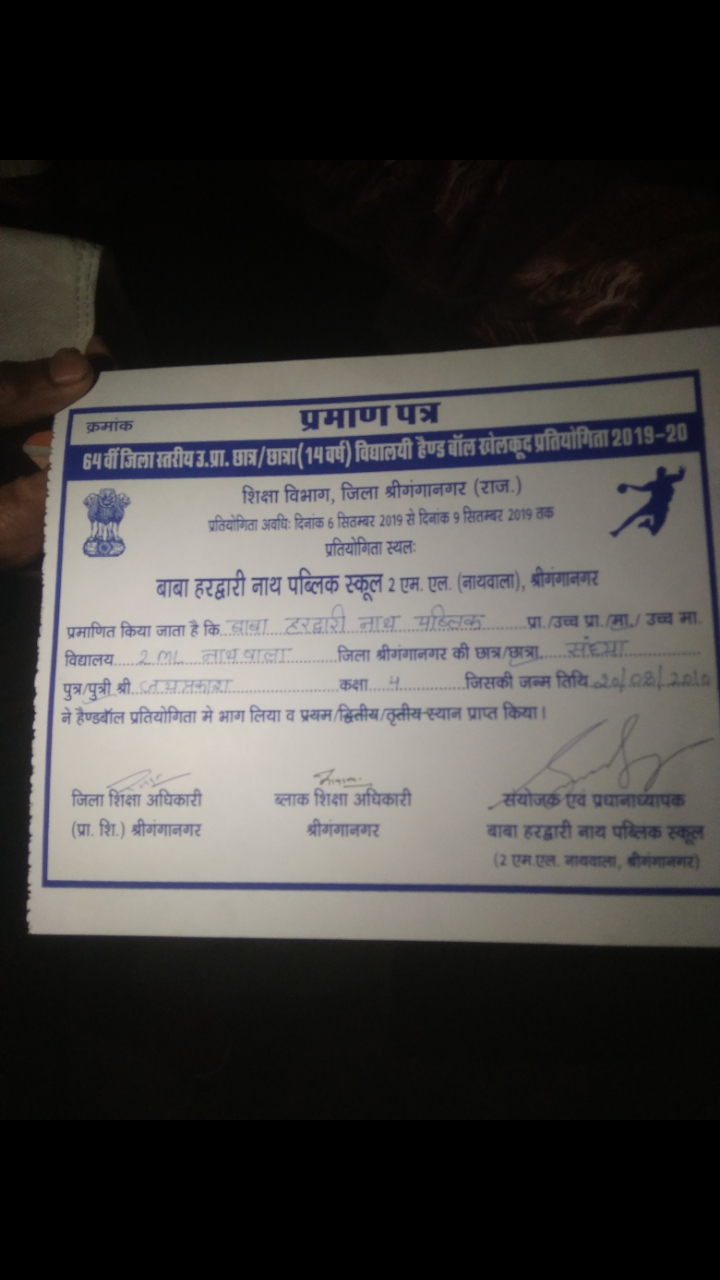 क्रमांक
प्रमाण पत्र
64 वीं जिला स्तरीय उ.प्रा. छात्र/छात्रा(14 वर्ष) विद्यालयी हैण्ड बॉल खेलकूद प्रतियोगिता 2019-20
शिक्षा विभाग, जिला श्रीगंगानगर (राज.)
प्रतियोगिता अवधिः दिनांक 6 सितम्बर 2019 से दिनांक 9 सितम्बर 2019 तक
प्रतियोगिता स्थलः
बाबा हरद्वारी नाथ पब्लिक स्कूल 2 एम. एल. (नायवाला), श्रीगंगानगर
प्रमाणित किया जाता है कि बाबा हरद्वारी नाथ पब्लिक प्रा./उच्च प्रा./मा./ उच्च मा.
विद्यालय 2 ML नाथवाला जिला श्रीगंगानगर की छात्र/छात्रा संध्या
पुत्र/पुत्री श्री कक्षा 4 जिसकी जन्म तिथि 20/08/2010
ने हैण्डबॉल प्रतियोगिता मे भाग लिया व प्रथम/द्वितीय/तृतीय स्थान प्राप्त किया।
जिला शिक्षा अधिकारी
(प्रा. शि.) श्रीगंगानगर
ब्लाक शिक्षा अधिकारी
श्रीगंगानगर
संयोजक एवं प्रधानाध्यापक
बाबा हरद्वारी नाथ पब्लिक स्कूल
(2 एम.एल. नायवाला, श्रीगंगानगर)